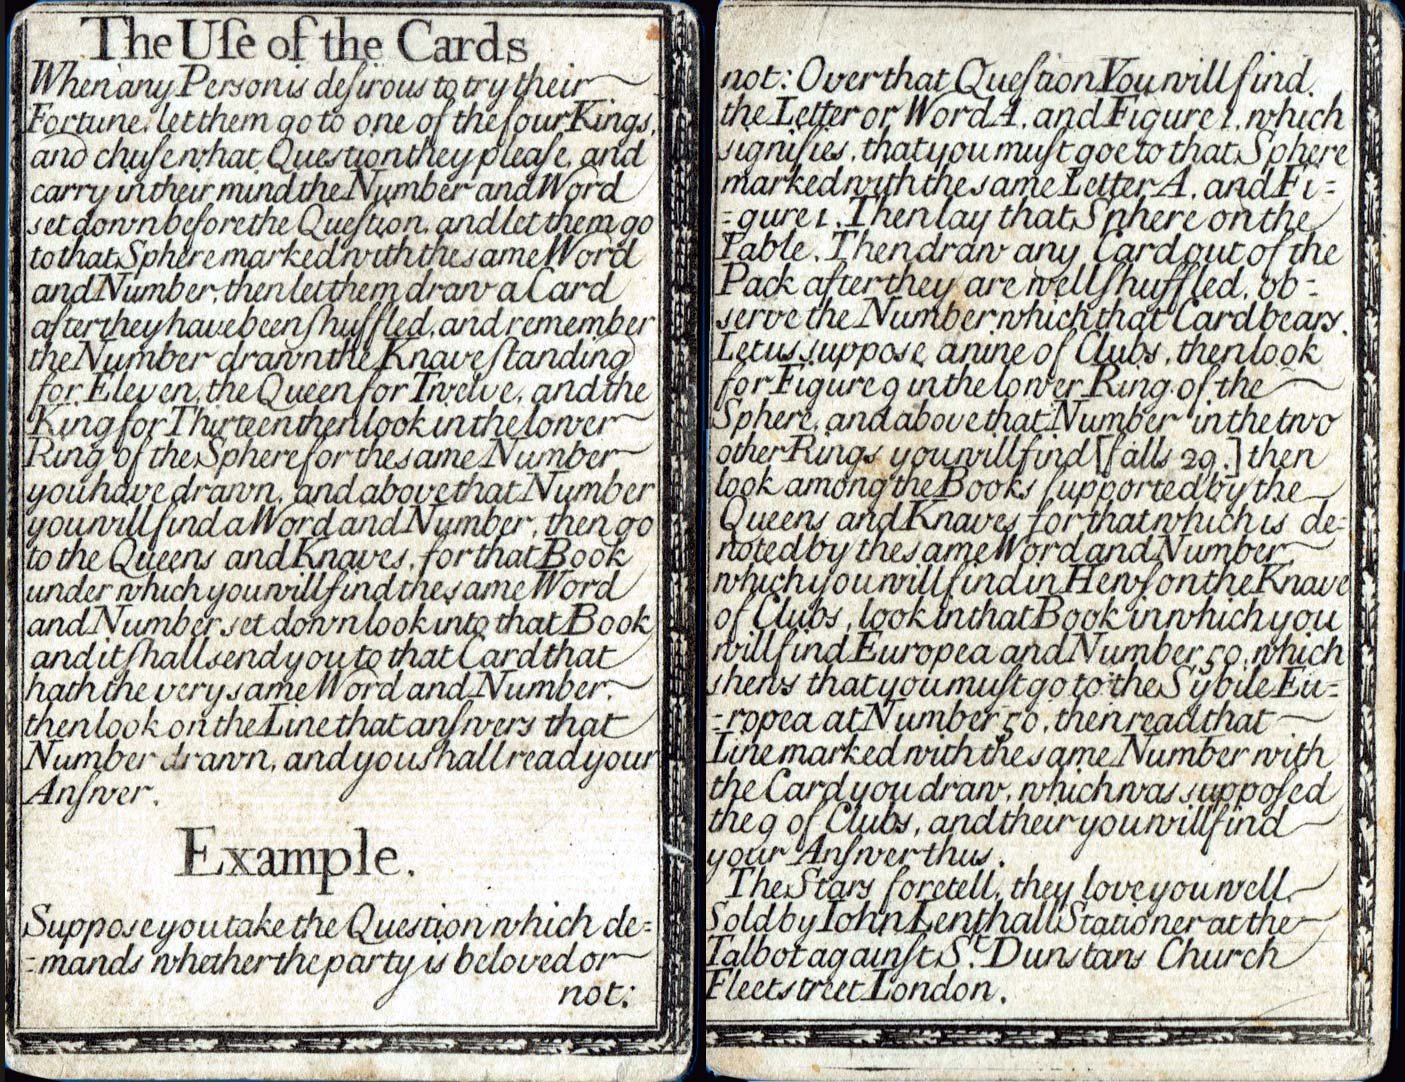 The Uſe of the Cards
When any Person is deſirous to try their
Fortune, let them go to one of the four Kings,
and chuſe what Question they pleaſe, and
carry in their mind the Number and Word
set down before the Queſtion, and let them go
to that Sphere marked with the same Word
and Number, then let them draw a Card
after they have been ſhuffled, and remember
the Number drawn the Knave ſtanding
for Eleven, the Queen for Twelve, and the
King for Thirteen then look in the lower
Ring of the Sphere for the same Number
you have drawn, and above that Number
you will find a Word and Number, then go
to the Queens and Knaves, for that Book
under which you will find the same Word
and Number set down look into that Book
and it ſhall send you to that Card that
hath the very same Word and Number,
then look on the Line that anſwers that
Number drawn, and you shall read your
Anſwer.
Example.
Suppose you take the Question which de=
=mands whether the party is beloved or
not:
not: Over that Queſtion You will find
the Letter or Word A, and Figure 1, which
signifies, that you muſt goe to that Sphere
marked with the same Letter A, and Fi=
=gure 1. Then lay that Sphere on the
Table, Then draw any Card out of the
Pack after they are well ſhuffled, ob=
serve the Number which that Card bears.
Let us suppose a nine of Clubs, then look
for Figure 9 in the lower Ring of the
Sphere, and above that Number in the two
other Rings you will find [falls 29.] then
look among the Books ſupported by the
Queens and Knaves for that which is de=
noted by the same Word and Number
which you will find in Hewſ on the Knave
of Clubs, look in that Book in which you
will find Europea and Number 50, which
shews that you muſt go to the Sybile Eu=
=ropea at Number 50, then read that
Line marked with the same Number with
the Card you draw, which was suppoſed
the 9 of Clubs, and their you will find
your Anſwer thus.
The Stars foretell, they love you well.
Sold by Iohn Lenthall Stationer at the
Talbot againſt St. Dunstans Church
Fleetstreet London.